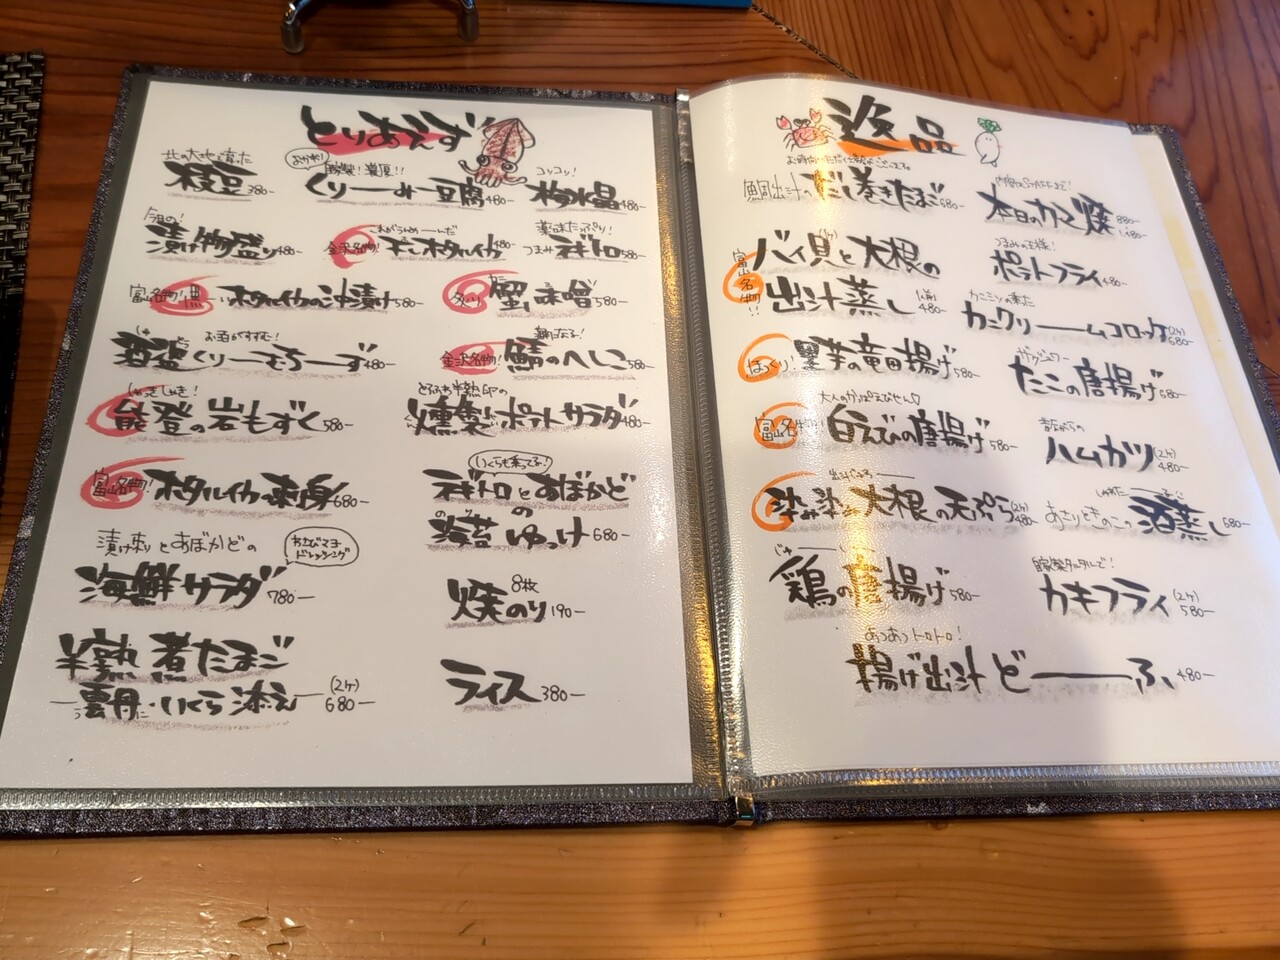 とりあえず
北の大地で育った
枝豆 380-
自家製!濃厚!!
くりーみー豆腐 480-
コリコリ!
梅水晶 480-
今日の!
漬け物盛り 480-
金沢名物!
ホタルイカ 480-
薬味たっぷり!
つまみ ザーサイ 580-
富山名物!黒
ホタルイカの沖漬け 580-
炙り
蟹味噌 580-
お酒がすすむ!
酒盗くりーむちーず 480-
金沢名物!
鯖のへしこ 580-
しゃきしゃき!
能登の岩もずく 580-
とろ〜り半熟卵の
燻製ポテトサラダ 480-
富山名物!
ホタルイカの刺身 680-
いくらも乗ってる!
ネギトロとあぼかど
の
海苔ゆっけ 680-
漬け東りとあぼかどの
わさびマヨ
ドレッシング
海鮮サラダ 780-
8枚
焼のり 190-
半熟煮たまご
雲丹・いくら添え (2ケ) 680-
ライス 380-
逸品
鯛出汁の だし巻きたまご 680-
本日のカマ焼 880-
1,480-
富山名物!!
バイ貝と大根の
出汁蒸し 480-
つまみの王様!
ポテトフライ 480-
カニミソの乗った
カニクリームコロッケ (2ケ) 680-
ほっくり!
里芋の竜田揚げ 580-
たこの唐揚げ 680-
大人のかっぱえびせん♡
富山名物!
白えびの唐揚げ 580-
昔ながらの
ハムカツ (2ケ) 480-
染み染み大根の天ぷら (2ケ) 480-
あさりときのこの 酒蒸し 680-
鶏の唐揚げ 580-
自家製タルタルで!
カキフライ (2ケ) 580-
あつあつトロトロ!
揚げ出汁どーふ 480-